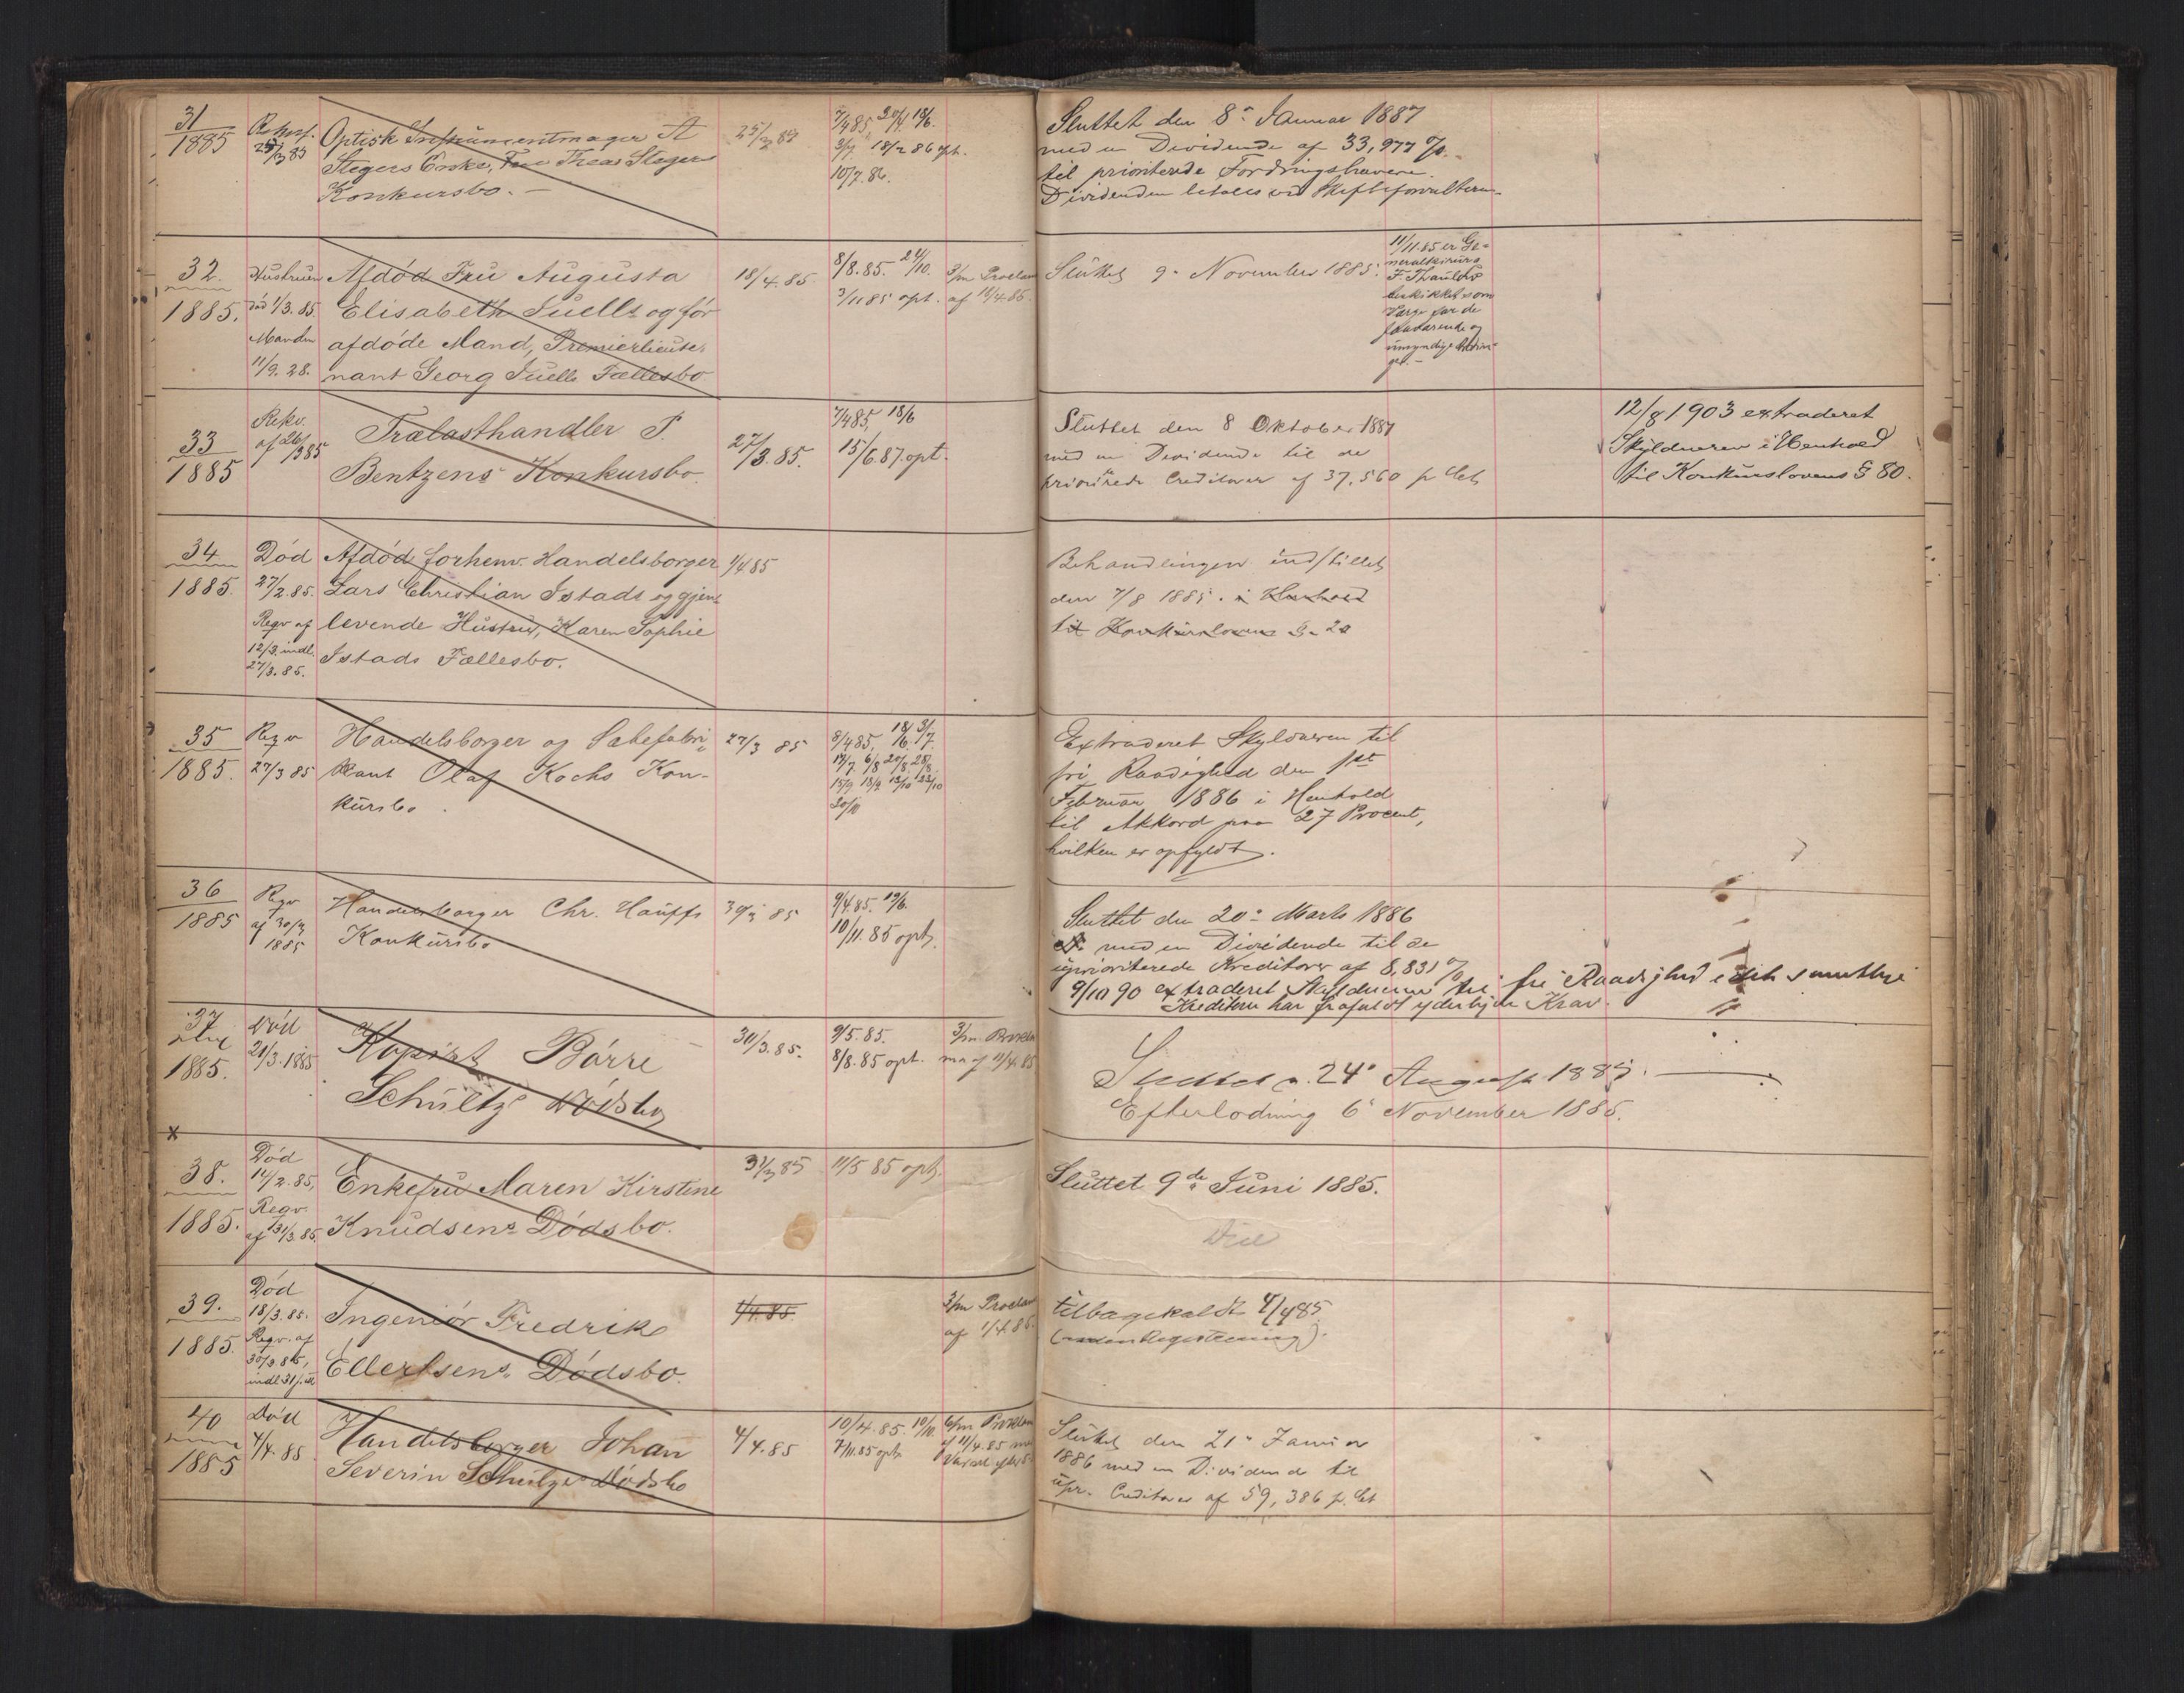 31
1885
25/3 85
Optisk Instrumentmager A
Stegers Enke, Fru Steger
Konkursbo. —
25/3 85
7/4 85
18/2 86 opt.
10/7. 86.
Sluttet den 8de Januar 1887
med en Dividende af 33,977 %
til prioriterede Fordringshavere.
Dividenden betales ved Skifteforvalteren
32.
1885.
Hustruen
død 1/3. 85.
Manden
11/9. 28.
Afdød Fru Augusta
Elisabeth Juells og før
afdøde Mand, Premierlieute-
nant Georg Juells Fællesbo
18/4. 85.
8/8. 85. 24/10.
3/11 85 opt.
3/m Proclam
af 18/4 85.
Sluttet 9. November 1885.
11/11. 85 er Ge-
neralkirurg
F. Thaulow
beskikket som
Værge for de
fraværende og
umyndige
33
1885
Rekv.
af 26/3 85
Trælasthandler P.
Bentzens Konkursbo.
27/3. 85.
7/4 85, 18/6
15/6. 87 opt.
Sluttet den 8 Oktober 1887
med en Dividende til de
Creditorer af 37,560 p Ct
12/8 1903 extraderet
Skyldneren i Henhold
til Konkurslovens § 80.
34
1885.
Død
27/2. 85.
Reqv af
12/3. indl.
27/3. 85.
Afdød forhenv. Handelsborger
Lars Christian Istads og gjen-
levende Hustru, Karen Sophie
Istads Fællesbo.
1/4 85
Behandlingen indstillet
den 7/8 1885. i Henhold
til Konkurslovens §.
35
1885.
Reqv
27/3 85
Handelsborger og Sæbefabri-
kant Olaf Kochs Kon-
kursbo.
27/3 85
8/4 85,
Extraderet Skyldneren til
fri Raadighed den 1ste
Februar 1886 i Henhold
til Akkord paa 27 Procent,
hvilken er opfyldt.
36
1885
Reqv
af 30/3
1885
Handelsborger Chr. Hauffs
Konkursbo
30/3 85
9/4. 85. 19/6.
10/11. 85 opt.
Sluttet den 20de Marts 1886
med en Dividende til de
uprioriterede Kreditorer af 8,831 %
9/10 90 extraderet Skyldneren til fri Raadighed idet samtlige
Kreditorer har frafaldt yderligere Krav.
37
1885.
Død
21/3. 1885
Kopist Børre
Schultz' Dødsbo
30/3. 85.
9/5. 85.
8/8. 85 opt.
3/m. Prokla
ma af 11/4. 85
Sluttet d. 24de August 1885.
Efterlodning 6' November 1885.
x
38.
1885.
Død
14/2. 85,
Reqv.
af 31/3. 85.
Enkefru Maren Kirstine
Knudsens Dødsbo.
31/3 85
11/5 85 opt.
Sluttet 9de Juni 1885.
39.
1885.
Død
18/3. 85.
Reqv. af
30/3. 85,
indl 31/
Ingeniør Fredrik
Ellertsens Dødsbo.
1/4. 85.
3/m Proclam
af 1/4. 85.
tilbagekaldt 4/4 85
(uden Registrering).
40
1885
Død
4/4. 85
Handelsborger Johan
Severin Schultzes Dødsbo
4/4. 85
10/4. 85. 10/11.
7/11. 85 opt
6/m Proklam
af 11/4. 85
Sluttet den 21de Januar
1886 med en Dividende til
upr. Creditorer af 59,386 p. Ct